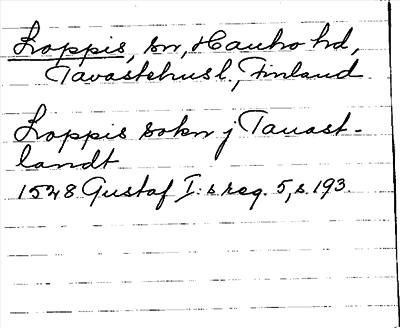 Loppis, sn, Hauho hd,
Tavastehus l., Finland
Loppis sokn j Tauast-
landt
1528 Gustaf I:s reg. 5, s. 193.